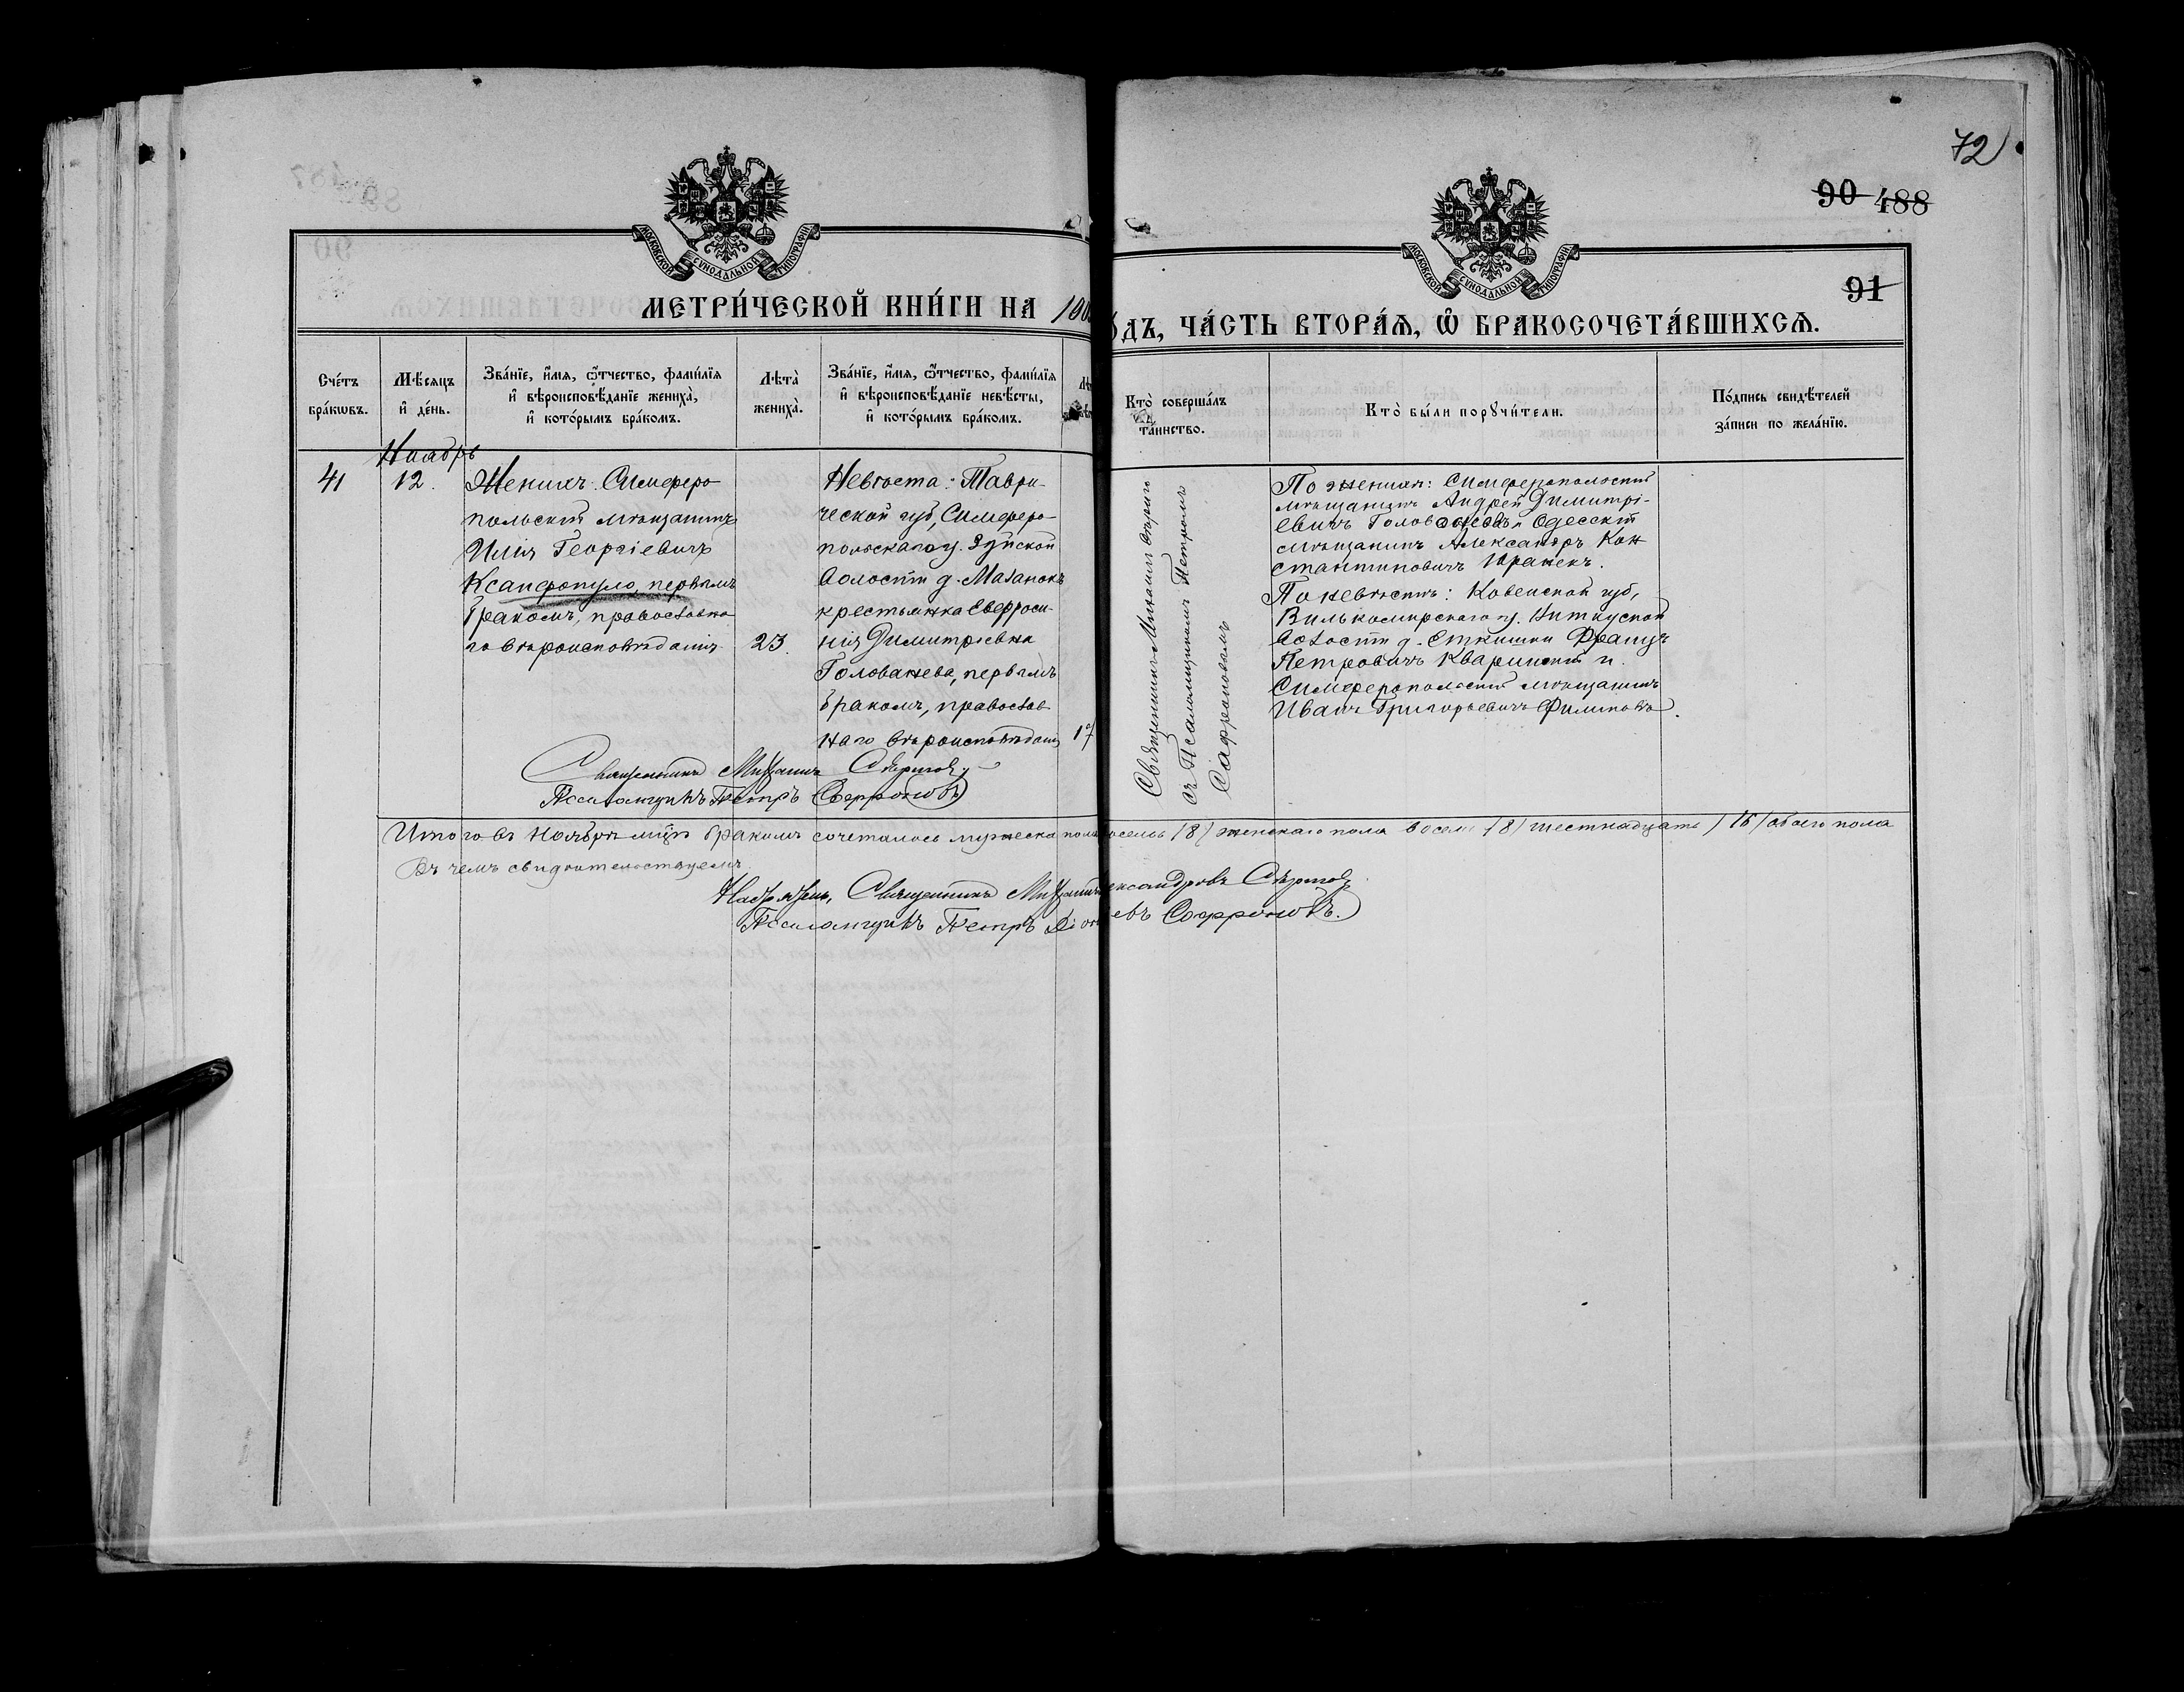 72
90 488
МОСКОВСКОЙ СѴНОДАЛЬНОЙ ТИПОГРАФІИ
МОСКОВСКОЙ СѴНОДАЛЬНОЙ ТИПОГРАФІИ
91
МЕТРИ́ЧЕСКОЙ КНИ́ГИ НА
О́ДЪ, ЧА́СТЬ ВТОРА́Я, Ѡ҆ БРАКОСОЧЕТА́ВШИХСѦ.
Сче́тъ
бра́кѡвъ.
Мѣ́сѧцъ
и҆ де́нь.
Зва́нїе, и҆́мѧ, ѻ҆́тчество, фами́лїѧ
и҆ вѣроисповѣ́данїе жениха̀,
и҆ кото́рымъ бра́комъ.
Лѣта̀
жениха̀.
Зва́нїе, и҆́мѧ, ѻ҆́тчество, фами́лїѧ
и҆ вѣроисповѣ́данїе невѣ́сты,
и҆ кото́рымъ бра́комъ.
Кто̀ соверша́лъ
та́инство.
Кто̀ бы́ли порꙋчи́тели.
По́дпись свидѣ́телей
за́писи по жела́нїю.
Ноябрь
41
12.
Женихъ: Симферо
польскій мѣщанинъ
Илія Георгіевичъ
Ксанфопуло, первымъ
бракомъ, православна
го вѣроисповѣданія
23.
Невѣста: Таври-
ческой губ, Симферо-
польскаго у. Зуйской
волости д. Мазанокъ
крестьянка Евфроси-
нія Димитріевна
Голованева, первымъ
бракомъ, православ
наго вѣроисповѣдані
17
Священникъ Михаилъ
съ Псаломщикомъ Петромъ
Сафроновымъ
По женихѣ: Симферопольскій
мѣщанинъ Андрей Димитрі-
евичъ Голованевъ и Одесскій
мѣщанинъ Александръ Кон
стантиновичъ
По невѣстѣ: Ковенской губ,
Вилькомирскаго у.
волости д. Францъ
Петровичъ и
Симферопольскій мѣщанинъ
Иванъ Григорьевичъ Филиповъ.
Священникъ Михаилъ
Псаломщикъ Петръ Софроновъ
Итого въ Ноябрѣ мцѣ бракомъ сочеталось мужеска пола восемь (8) женскаго пола восемь (8) шестнадцать (16) обоего пола
Въ чемъ свидѣтельствуемъ
Священникъ Михаилъ Александровъ
Псаломщикъ Петръ Софроновъ.